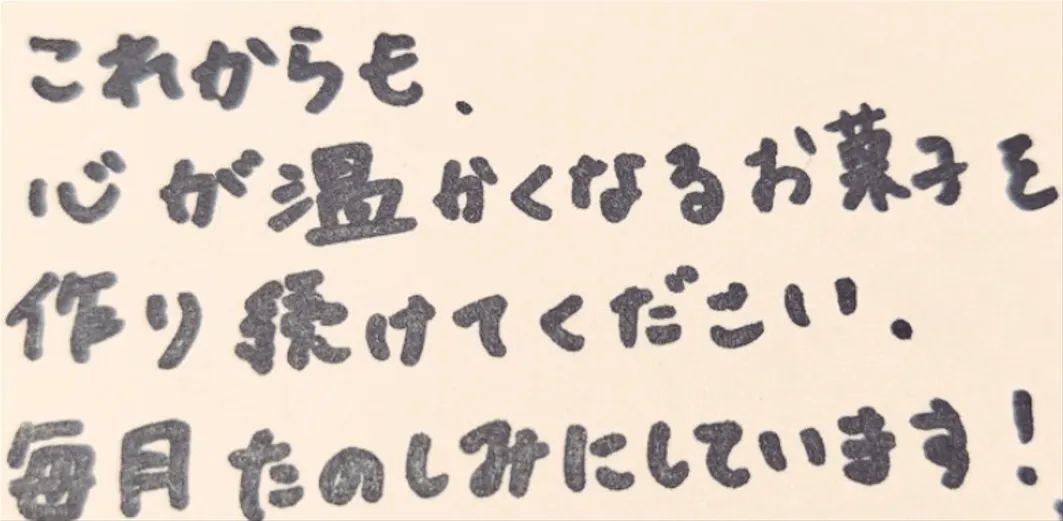 これからも.
心が温かくなるお菓子を
作り続けてください.
毎月たのしみにしています!